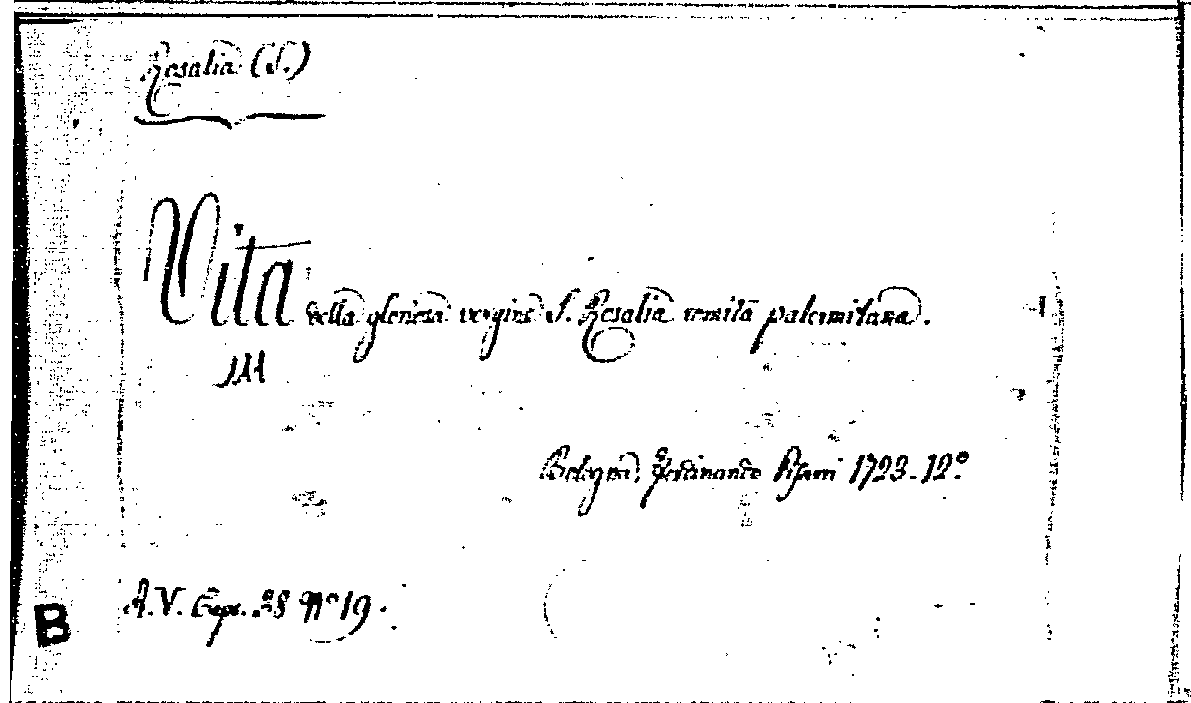 Rosalia (S.)
Vita della gloriosa vergine S. Rosalia romita palermitana.
Bologna, Ferdinando Pisarri 1723. 12º
A.V. Caps. 28 Nº 19.
B